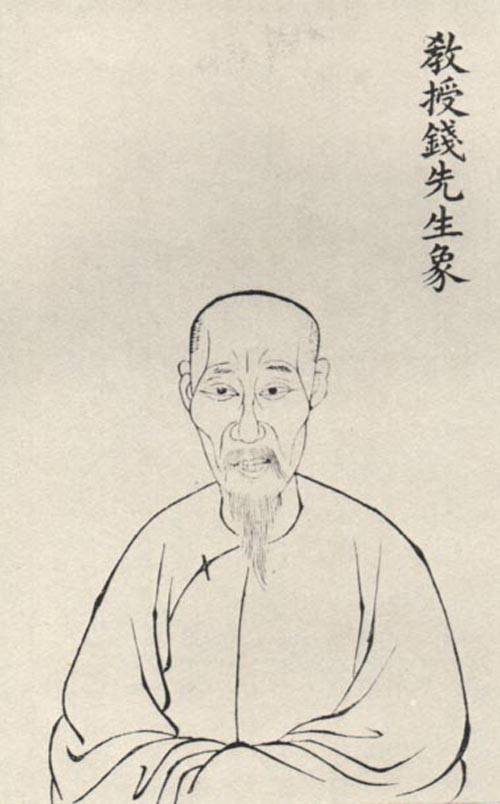 教授錢先生象